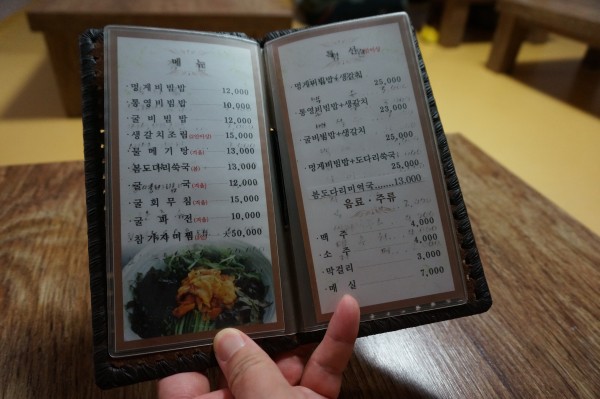 메 뉴
·멍게비빔밥 12,000
·통영비빔밥 10,000
·굴 비 빔 밥 12,000
·생갈치조림 15,000
·물 메 기 탕 (겨울) 13,000
·봄도다리쑥국 (봄) 13,000
·굴 국 (겨울) 12,000
·굴 회 무 침 (겨울) 15,000
·굴 파 전 (겨울) 10,000
·참가자미찜 50,000
·멍게비빔밥+생갈치
25,000
·통영비빔밥+생갈치
23,000
·굴비빔밥+생갈치
25,000
·멍게비빔밥+도다리쑥국
25,000
봄도다리미역국.......13,000
음료 · 주류
·맥 주 4,000
·소 주 4,000
·막걸리 3,000
·매 실 7,000